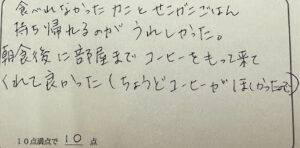 食べれなかったカニとせいがにごはん
持ち帰れるのがうれしかった。
朝食後に部屋までコーヒーをもって来て
くれて良かった(ちょうどコーヒーがほしかったので)
10点満点で 10 点